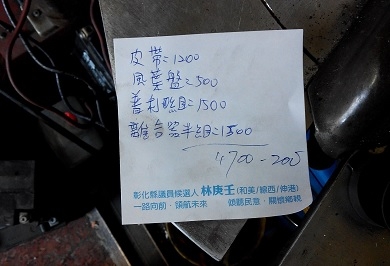 皮帶=1200
風葉盤=500
普利盤組=1500
離合器半組=1500
4700-200
彰化縣議員候選人 林庚壬 (和美/線西/伸港)
一路向前．領航未來 傾聽民意．關懷鄉親